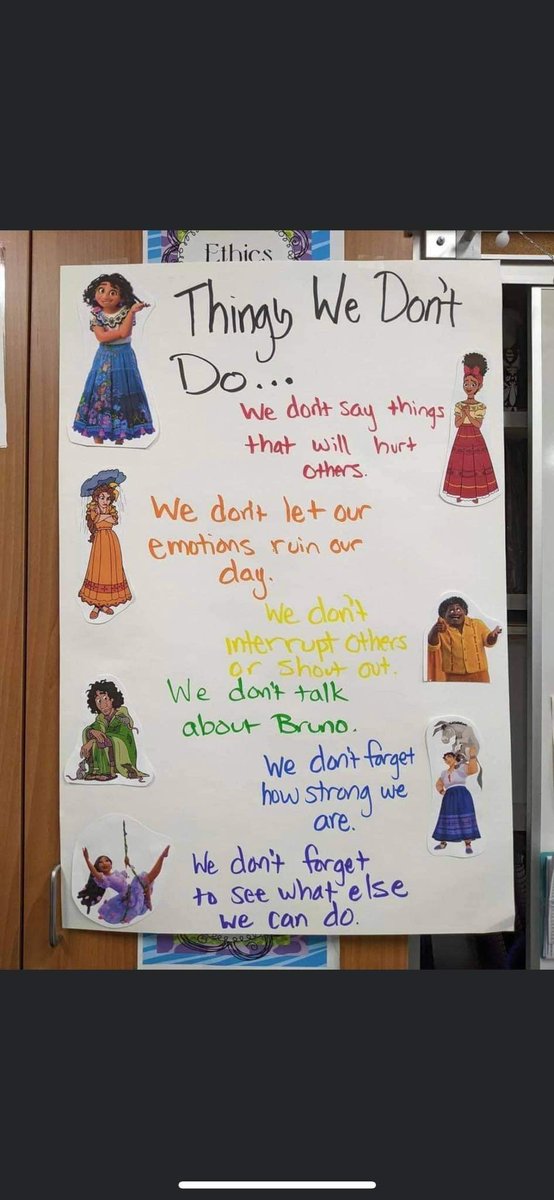 Ethics
Things We Don't
Do...
We don't say things
that will hurt
others.
We don't let our
emotions ruin our
day.
We don't
interrupt others
or shout out.
We don't talk
about Bruno.
We don't forget
how strong we
are.
We don't forget
to see what else
we can do.